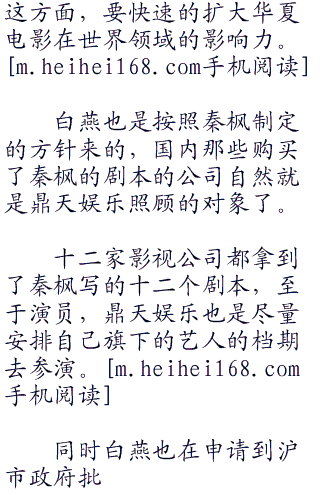 这方面，要快速的扩大华夏
电影在世界领域的影响力。
[m.heihei168.com手机阅读]
白燕也是按照秦枫制定
的方针来的，国内那些购买
了秦枫的剧本的公司自然就
是鼎天娱乐照顾的对象了。
十二家影视公司都拿到
了秦枫写的十二个剧本，至
于演员，鼎天娱乐也是尽量
安排自己旗下的艺人的档期
去参演。[m.heihei168.com
手机阅读]
同时白燕也在申请到沪
市政府批